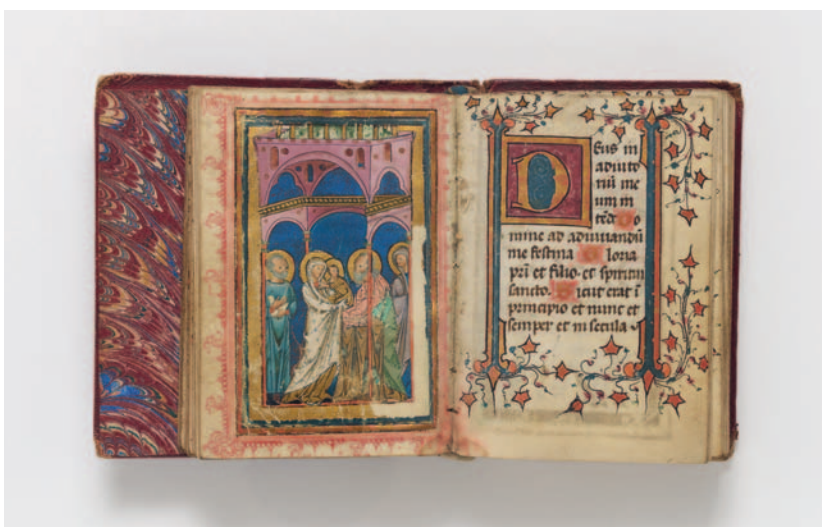 DEus in
adiuto
riū me
um in
tēde Do
mine ad adiuuandū
me festina Gloria
pr̄i et filio· et spiritui
sancto· Sicut erat ī
principio et nunc et
semper et in secula